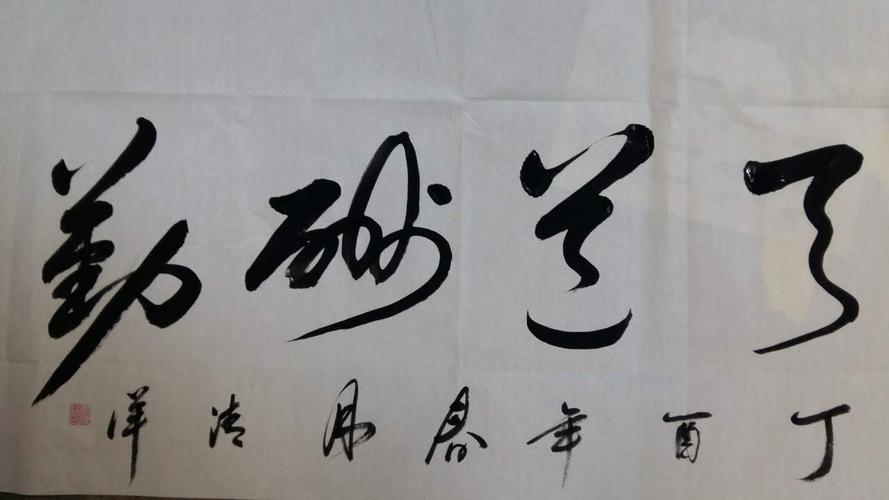 天道酬勤
丁酉年春月清洋